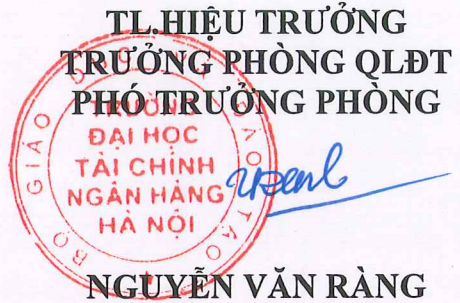 TL.HIỆU TRƯỞNG
TRƯỞNG PHÒNG QLĐT
PHÓ TRƯỞNG PHÒNG
BỘ GIÁO DỤC VÀ ĐÀO TẠO
TRƯỜNG
ĐẠI HỌC
TÀI CHÍNH
NGÂN HÀNG
HÀ NỘI
NGUYỄN VĂN RÀNG